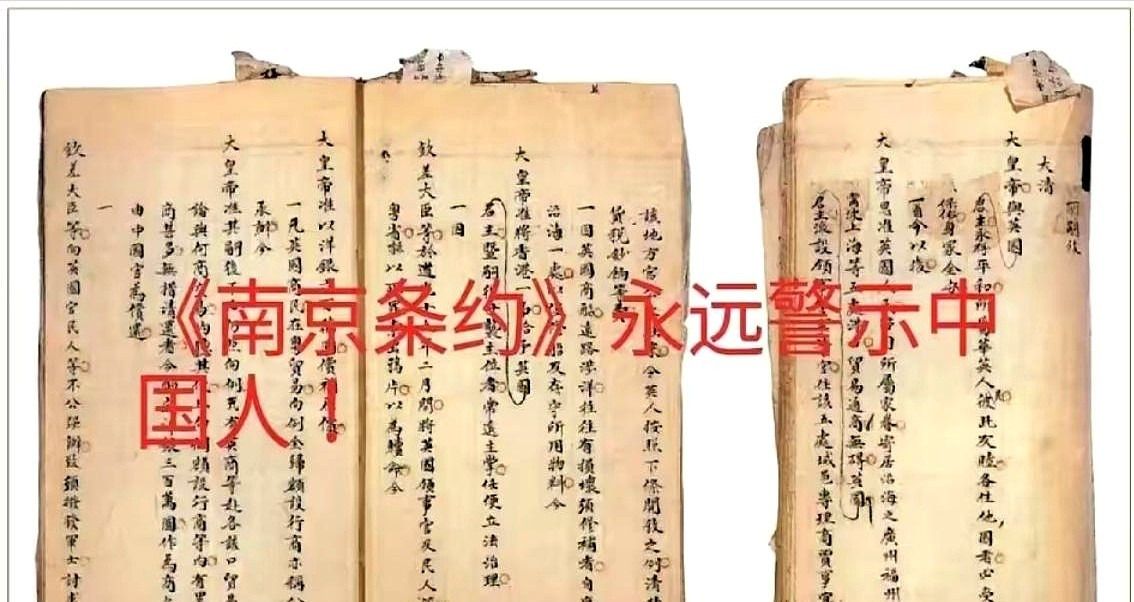 《南京条约》永远警示中
国人！
大清
大皇帝與英國
君主永存平和所屬華英人彼此友睦各住他國者必受
保佑身家全安
一自今以後
大皇帝恩准英國人民帶同所屬家眷寄居沿海之廣州福州
寧波上海等五處港口貿易通商無礙英國
君主派設領事住該五處城邑專理商賈事宜
該地方官令英人按照下條開後之例清
貨稅鈔餉等費
一因英國商船遠路涉洋往往有損壞須修補者自
沿海一處以便修船及存守所用物料今
大皇帝准將香港一島給予英國
君主暨嗣後世襲主位者常遠主掌任便立法治理
一因
欽差大臣等於道光十九年二月間將英國領事官及民人
粵省強以出鴉片以為贖命今
大皇帝准以洋銀償補原價
一凡英國商民在粵貿易向例全歸額設行商亦稱公
承辦今
大皇帝准其嗣後不必仍照向例凡有英商等赴各該口貿易
論與何商交易均聽其便且向例額設行商等內有累
商甚多無措清還者今酌定洋銀三百萬圓作為商
由中國官為償還
一
欽差大臣等向英國官民人等不公強辦致須撥發軍士討求